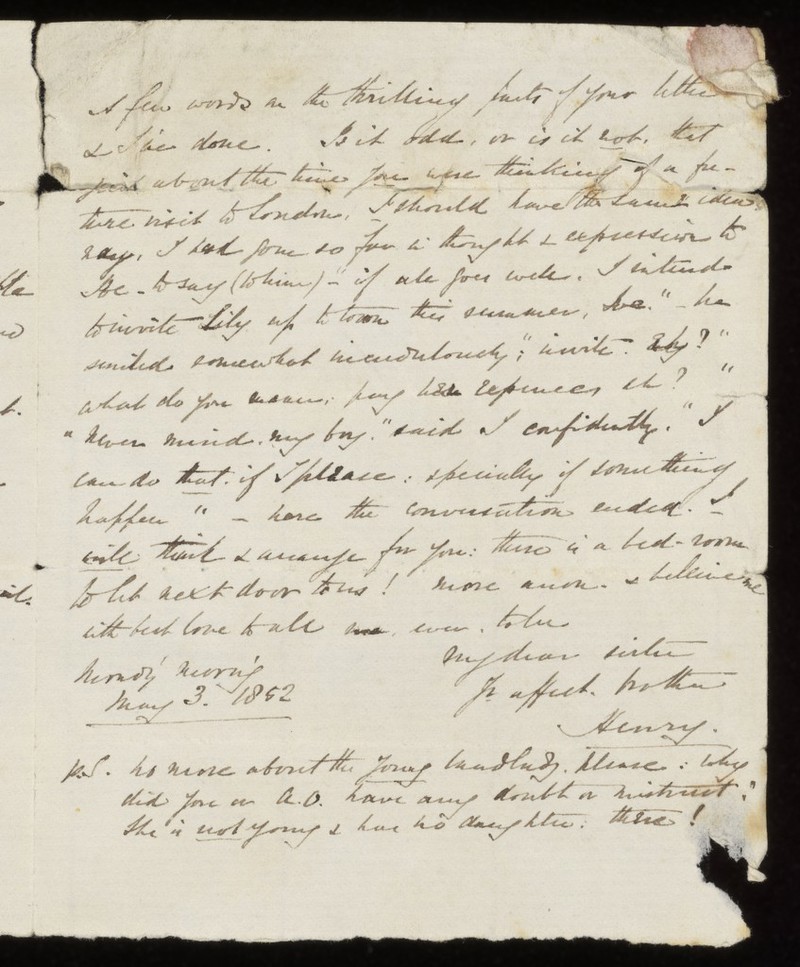 A few words on the thrilling parts of your letter
& I've done. Is it odd, or is it not, that
just about the time you were thinking of a fu-
ture visit to London, I should have the same idea,
nay, I had gone so far in thought & expression to
- to say (to him) - "if all goes well. I intend
to invite Lily up to town this summer, &c." - he
smiled somewhat incredulously; "invite. why?"
what do you mean; pay her expences eh?"
"never mind, my boy." said I confidently. "I
can do that. if I please: specially if something
happen" - here the conversation ended. I
will think & arrange for you: there is a bed-room
to let next door to us! more anon - & believe me
with best love to all ever. to be
my dear sister
Yr affect. brother
Henry.
Mondy morng
May 3. 1852
p.S. no more about the young landlady. please: why
did you or A.O. have any doubt or mistrust?
She is not young & has no daughter: there!